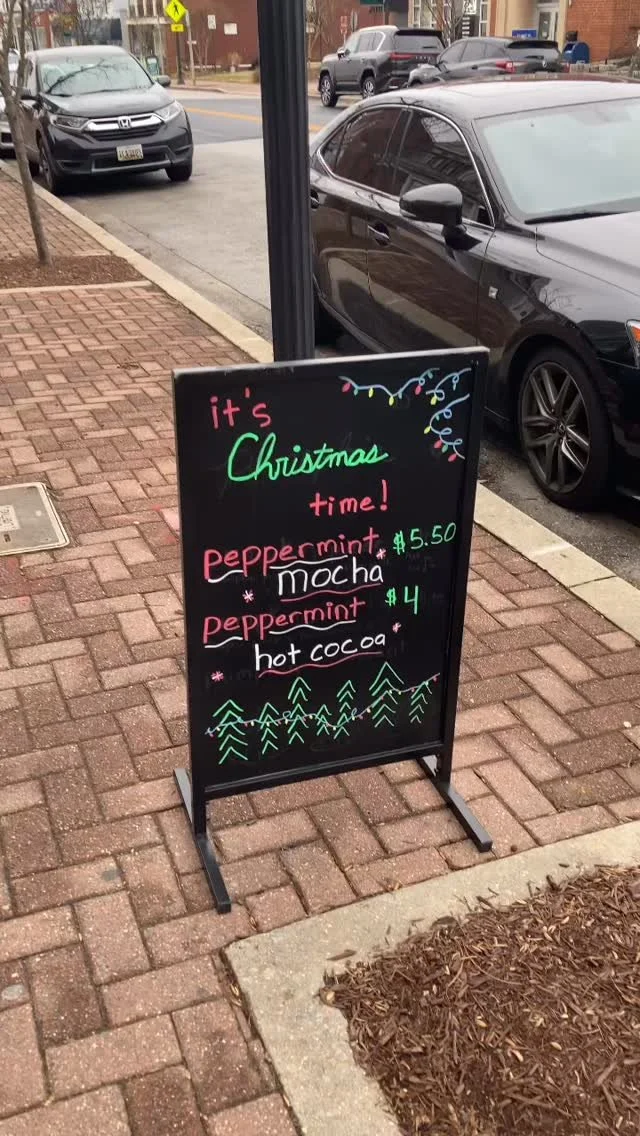 it's
Christmas
time!
peppermint $5.50
mocha
peppermint $4
hot cocoa